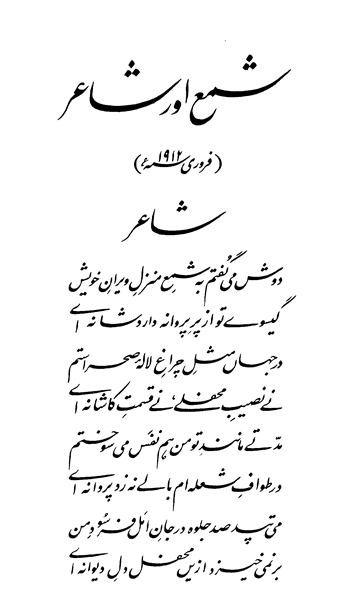 شمع اور شاعر
(فروری ۱۹۱۲ء)
شاعر
دوش می گفتم بہ شمعِ منزلِ ویرانِ خویش
گیسوے تو از پرِ پروانہ دارد شانہ اے
درجہاں مثلِ چراغِ لالۂ صحراستم
نے نصیبِ محفلے، نے قسمتِ کاشانہ اے
مدّتے مانندِ تو من ہم نفَس می سوختم
در طوافِ شعلہ ام بالے نہ زد پروانہ اے
می تپد صد جلوہ در جانِ امل فرسودِ من
بر نمی خیزد ازیں محفل دلِ دیوانہ اے